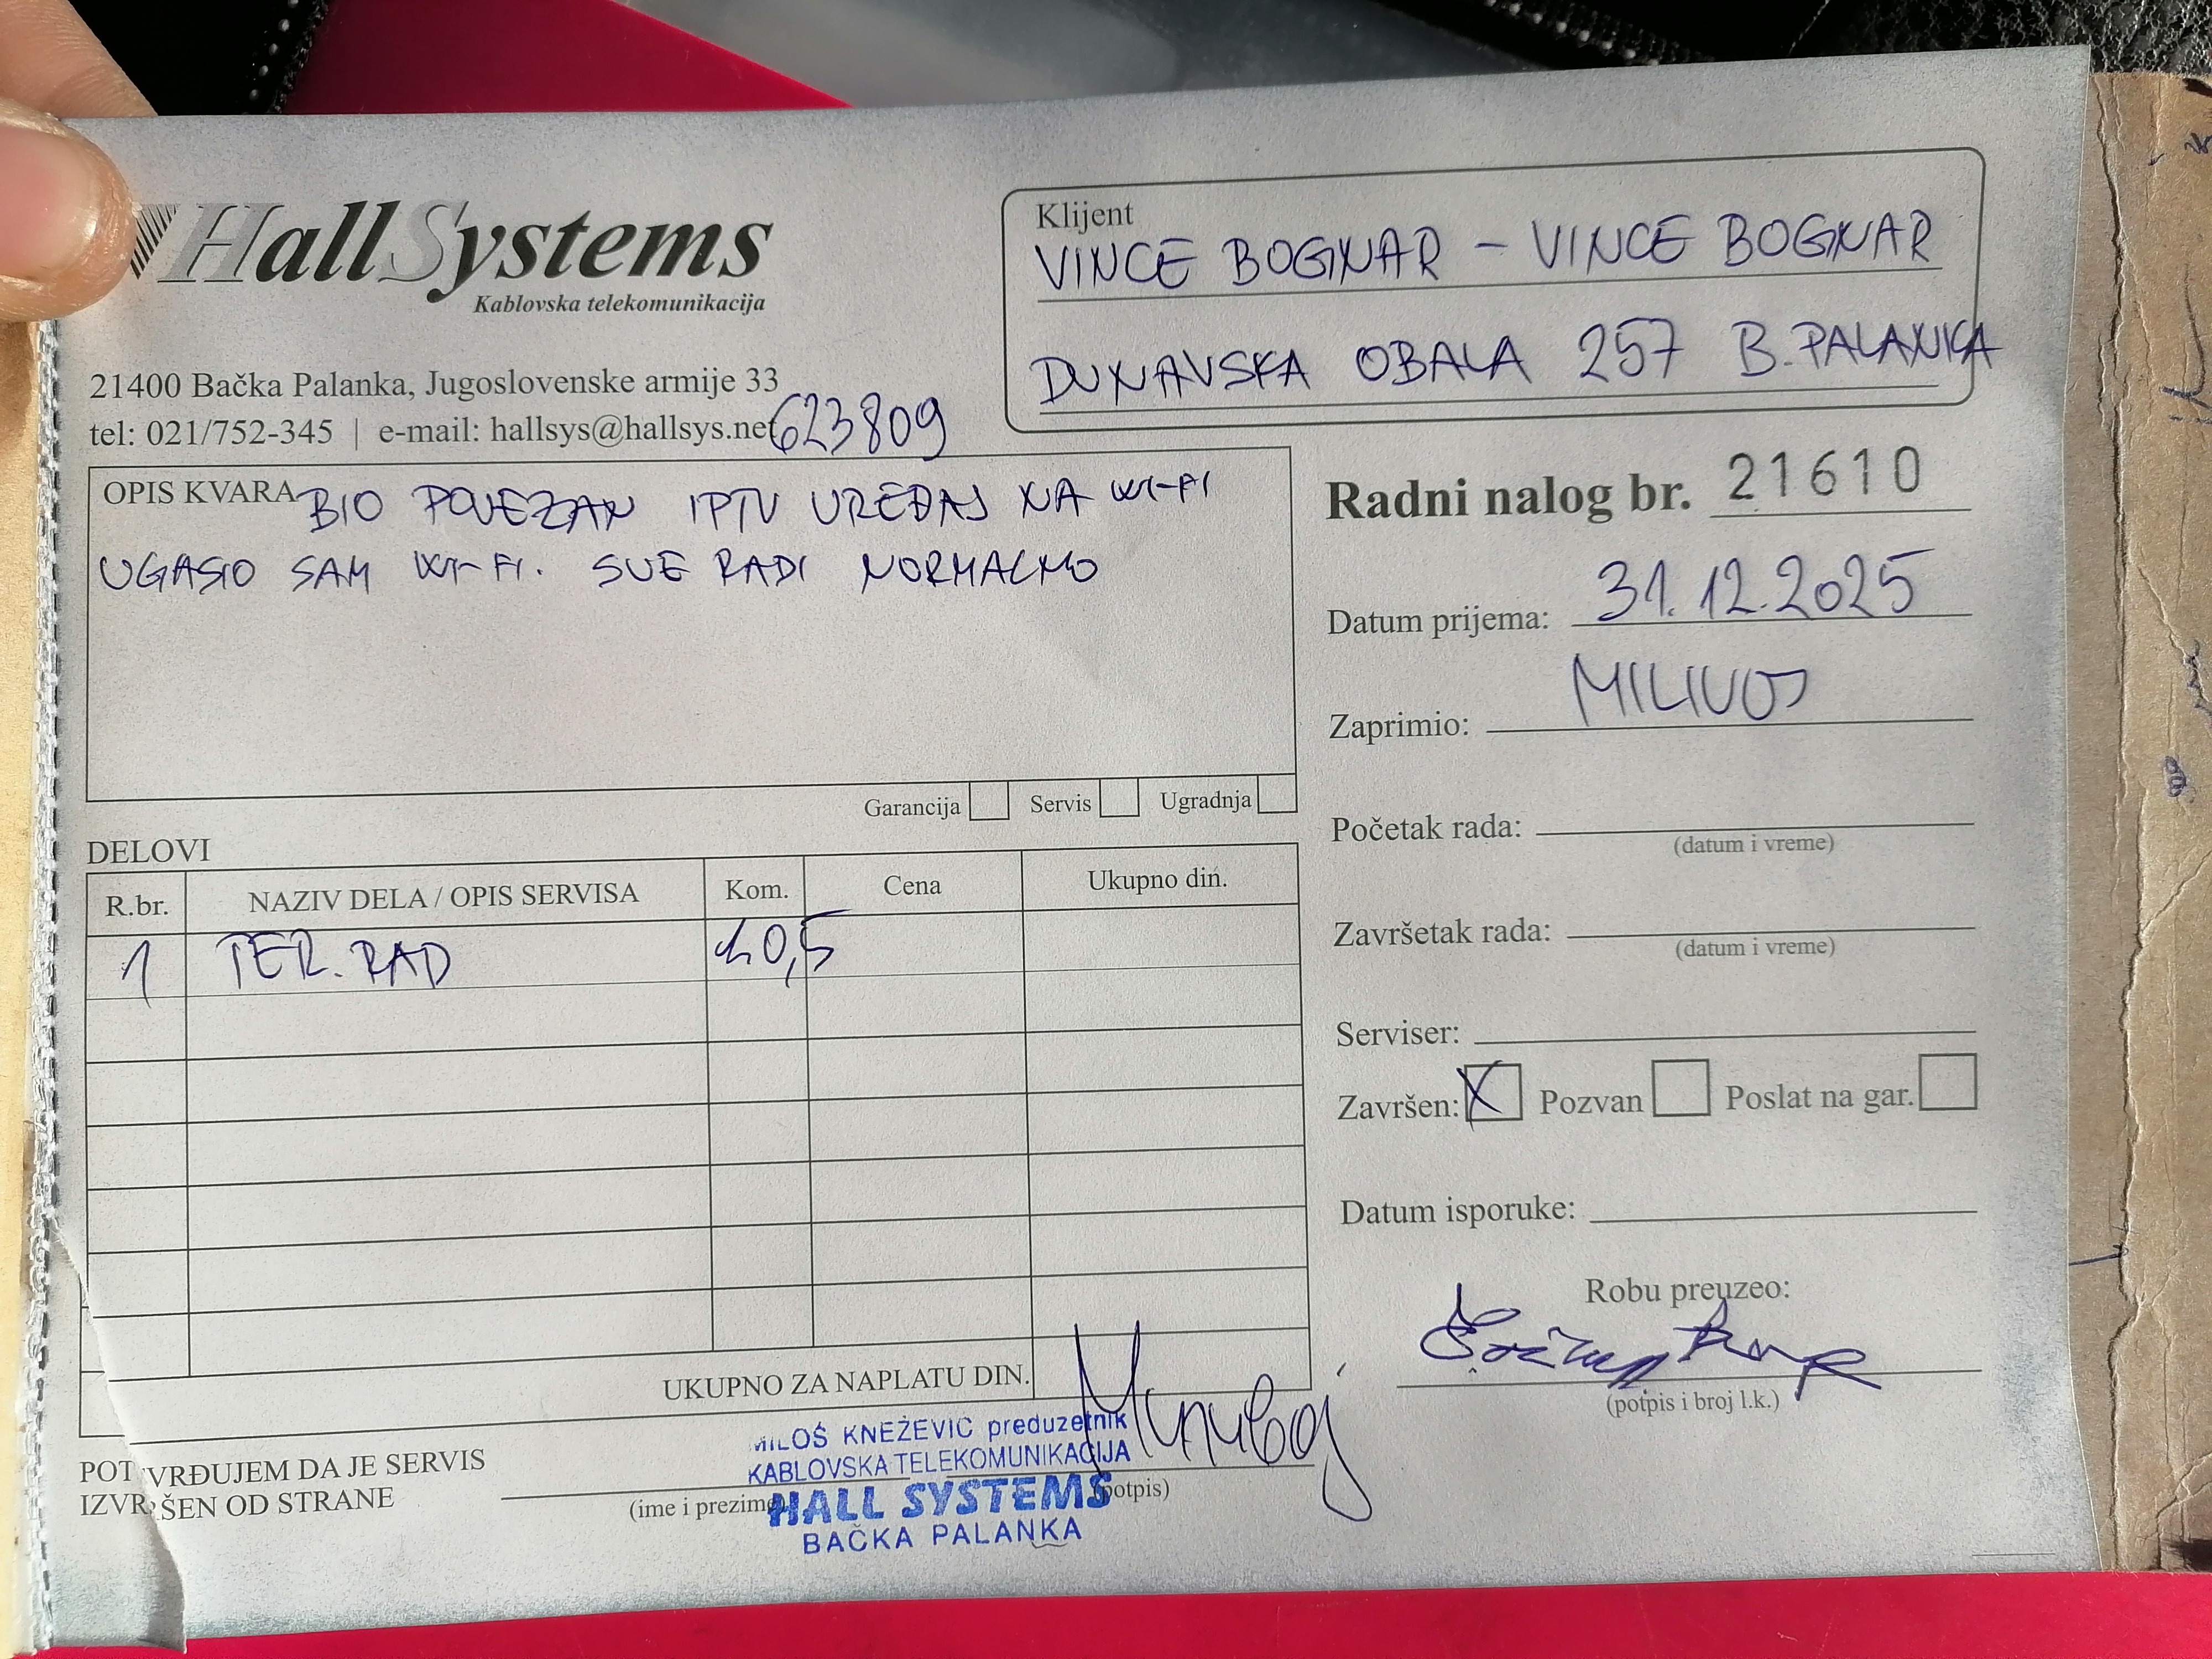 Hall Systems
Kablovska telekomunikacija
21400 Bačka Palanka, Jugoslovenske armije 33
tel: 021/752-345 | e-mail: hallsys@hallsys.net
623809
Klijent
VINCE BOGNAR - VINCE BOGNAR
DUNAVSKA OBALA 257 B. PALANKA
OPIS KVARA BIO POVEZAN IPTV UREĐAJ NA WI-FI
UGASIO SAM WI-FI. SVE RADI NORMALNO
Garancija Servis Ugradnja
Radni nalog br. 21610
Datum prijema: 31.12.2025
Zaprimio: MILIVOJ
Početak rada:
(datum i vreme)
Završetak rada:
(datum i vreme)
Serviser:
Završen: X Pozvan Poslat na gar.
Datum isporuke:
Robu preuzeo:
(potpis i broj l.k.)
DELOVI
R.br. NAZIV DELA / OPIS SERVISA Kom. Cena Ukupno din.
1 TER. RAD 0,5
UKUPNO ZA NAPLATU DIN.
POTVRĐUJEM DA JE SERVIS
IZVRŠEN OD STRANE
(ime i prezime)
(potpis)
MILOŠ KNEŽEVIĆ preduzetnik
KABLOVSKA TELEKOMUNIKACIJA
HALL SYSTEMS
BAČKA PALANKA